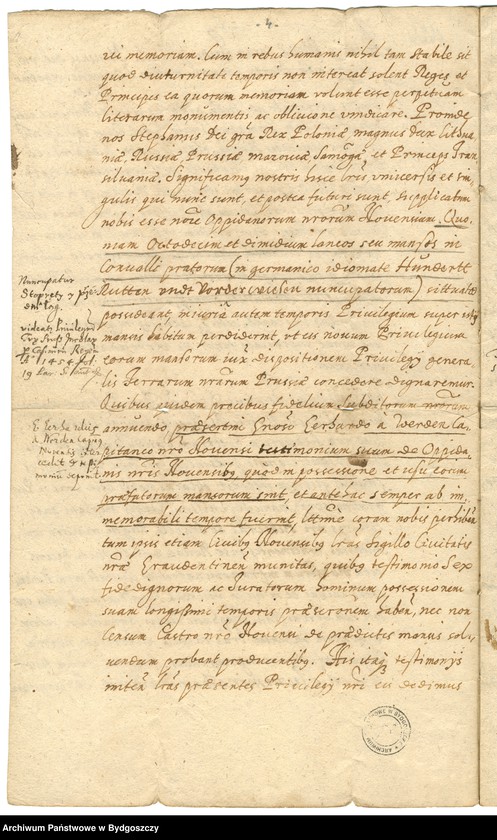 - 4. -
rei memoriam. Cum in rebus humanis nihil tam stabile sit
quod diuturnitate temporis non intereat solent Reges et
Principes ea quorum memoriam volunt esse perpetuam
literarum monumentis ac oblivione vindicare. Proinde
nos Stephanus Dei gra Rex Poloniæ magnus Dux Lithua
niæ, Russiæ, Prussiæ mazoviæ, Samog. et Princeps Tran
silvaniæ. Significamus nostris hisce lris universis et sin
gulis qui nunc sunt, et postea futuri sunt, supplicatum
nobis esse noie Oppidanorum nrorum Novensium, Quo
niam Octodecim et dimidium laneos seu mansos in
Convalli pratorum (in germanico idiomate Hundertt
Rutten undt Vorder wiesen nuncupatorum) sittuatos
possideant, iniuria autem temporis Privilegium super istis
mansis habitum perdiderint, ut eis novum Privilegium
eorum mansorum iuxta dispositionem Privilegij genera
lis Terrarum nrarum Prussiæ concedere dignaremur.
Quibus eisdem precibus fidelium subditorum nrorum
annuendo, præsertim Gnosi Gerhardo a Werden Ca
pitaneo nro Novensi testimonium suum de Oppida
nis nris Novensibus, quod in possessione et usu eorum
præfatorum mansorum sint, et antehac semper ab im
memorabili tempore fuerint, coram nobis perhiben
tum ipsis etiam Civibus Novensibus lras Sigillo Civitatis
nræ Graudentinen munitas, quibus testimonio Sex
fide dignorum ac Juratorum hominum possessionem
suam longissimi temporis præscriptionem haben, nec non
Censum Castro nro Novensi de prædictis mansis sol
vendum probant producentibus. His itaq testimonijs
lras præsentes Privilegij nri eis dedimus
Nuncupatur
videatur Privilegium
Casimiri Regis
1454
E. Gerhardus
a Werden
Novensis
Archiwum Państwowe w Bydgoszczy